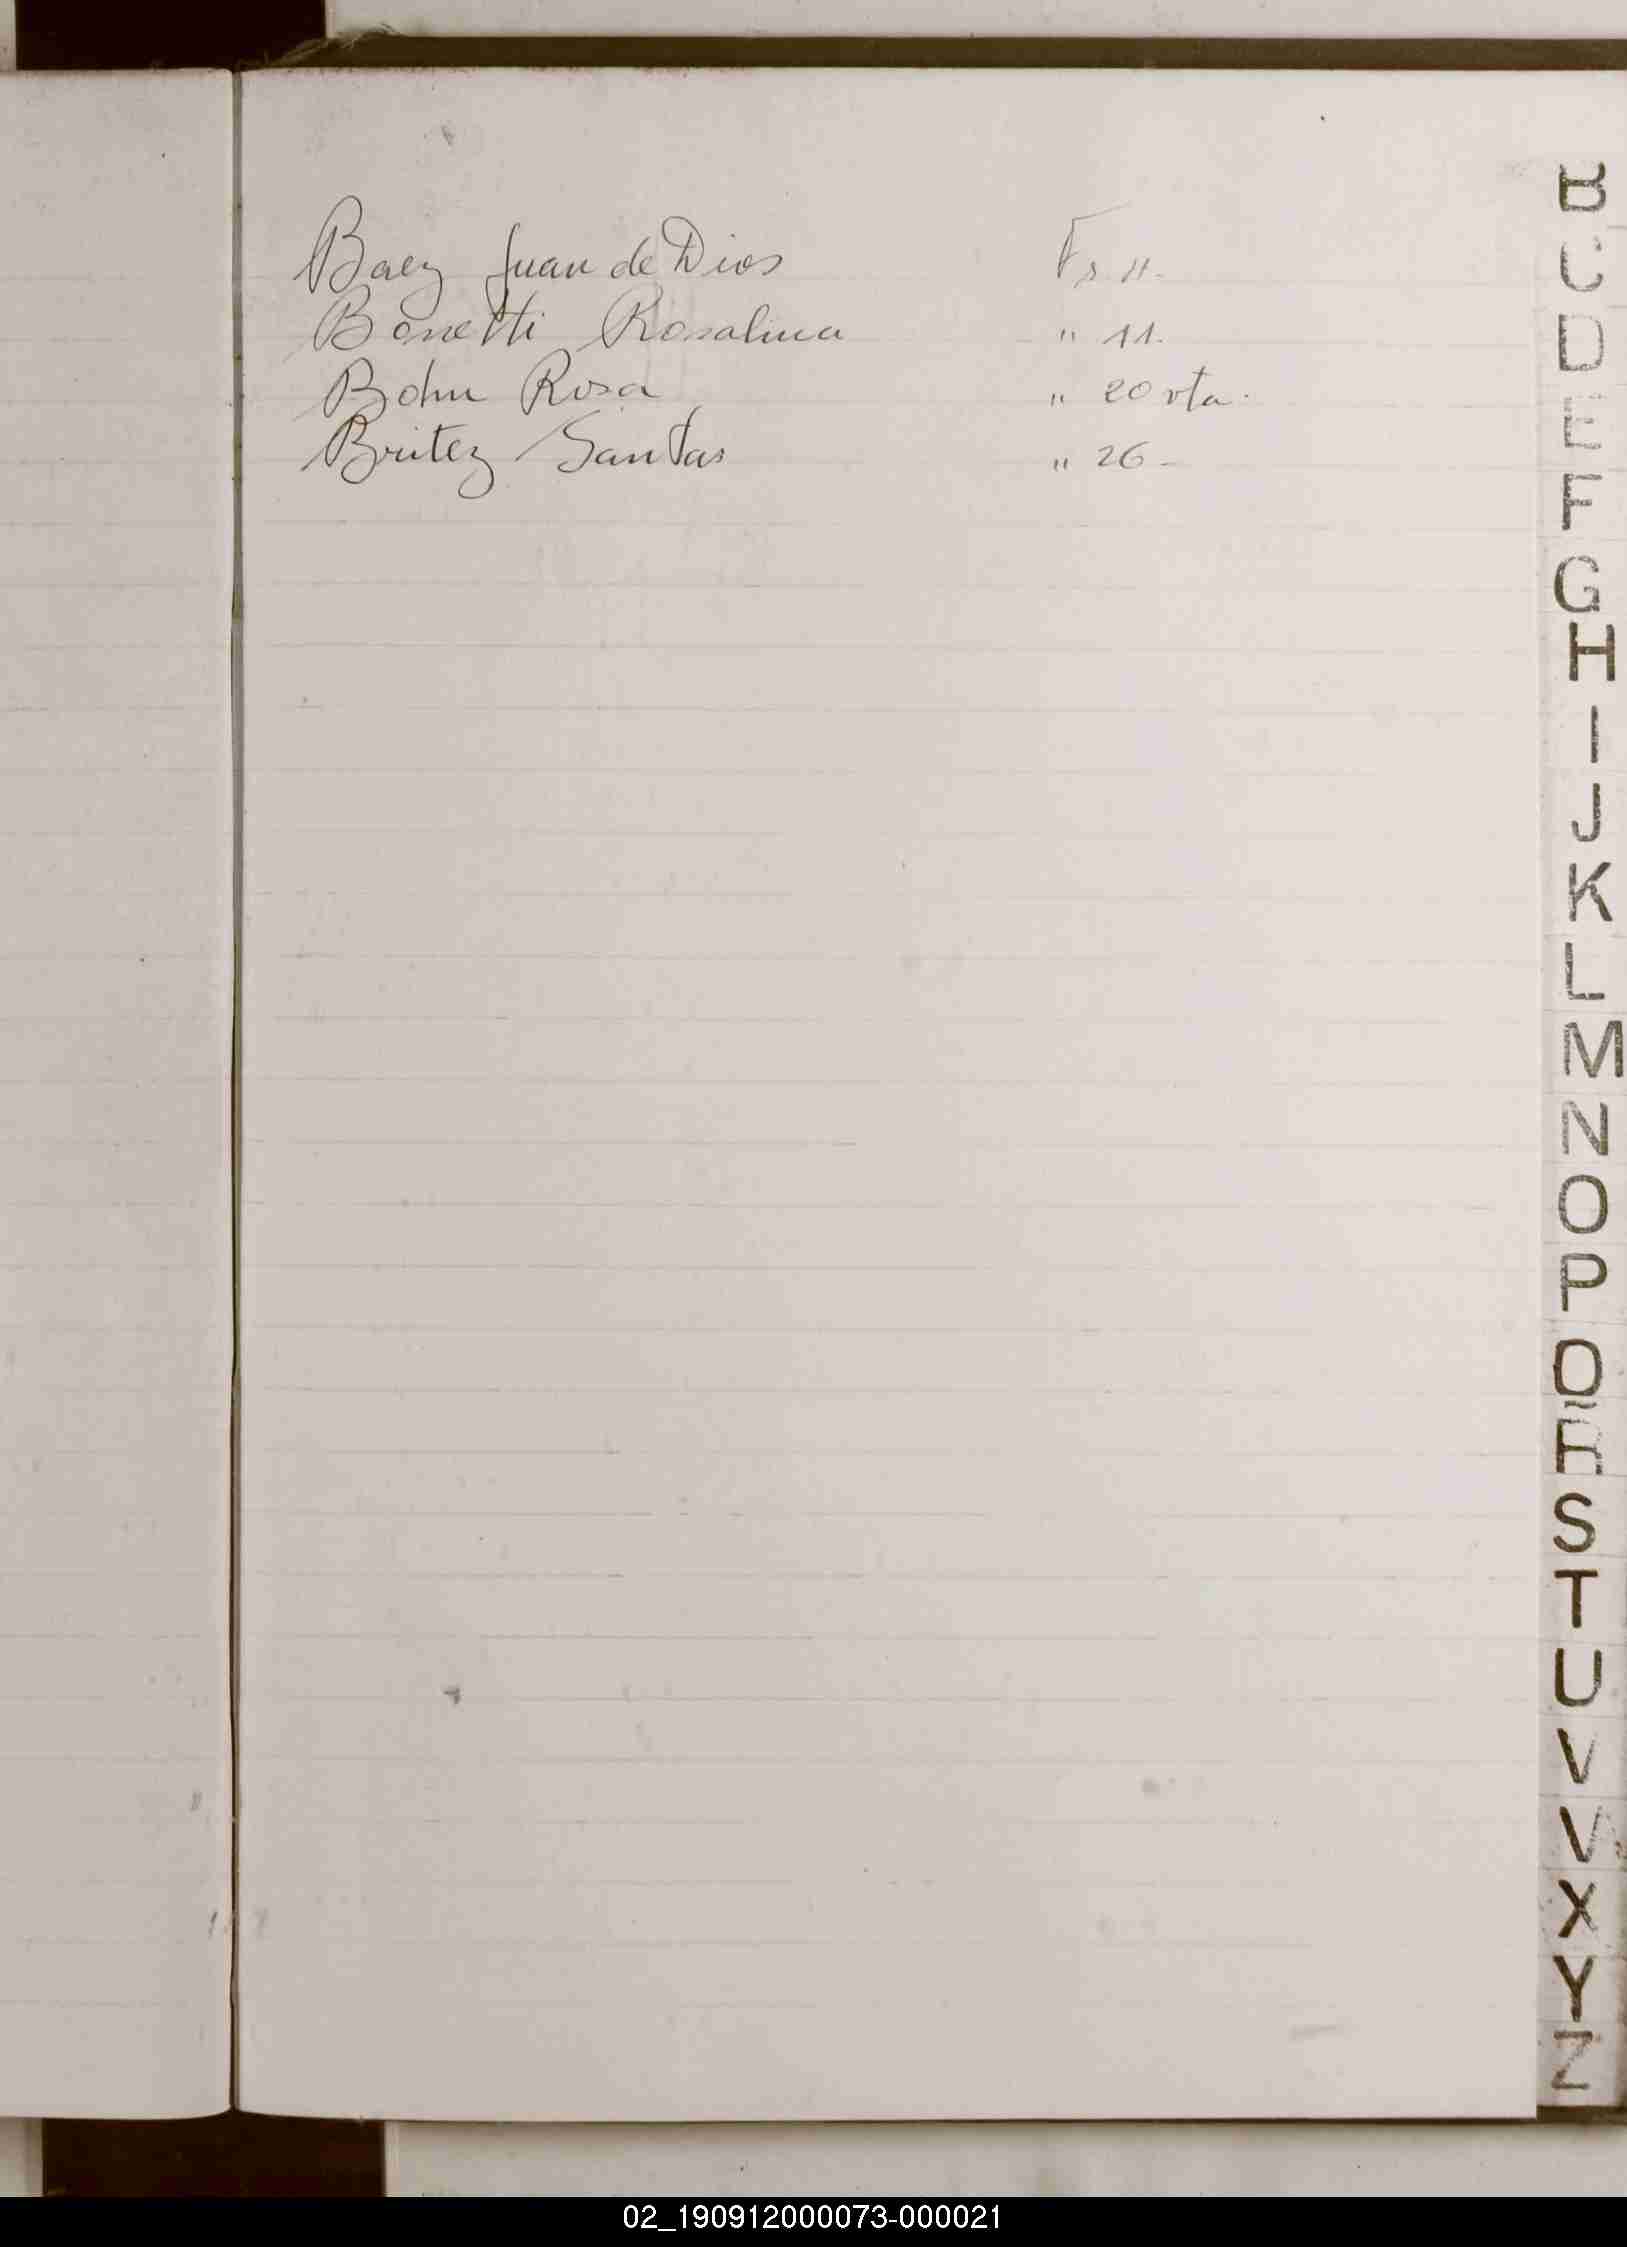 Baez Juan de Dios Fs 11.
Bonetti Rosalina " 11.
Bohn Rosa " 20 vta.
Britez Santas " 26 -
B
C
D
E
F
G
H
I
J
K
L
M
N
O
P
Q
R
S
T
U
V
X
Y
Z
02_190912000073-000021